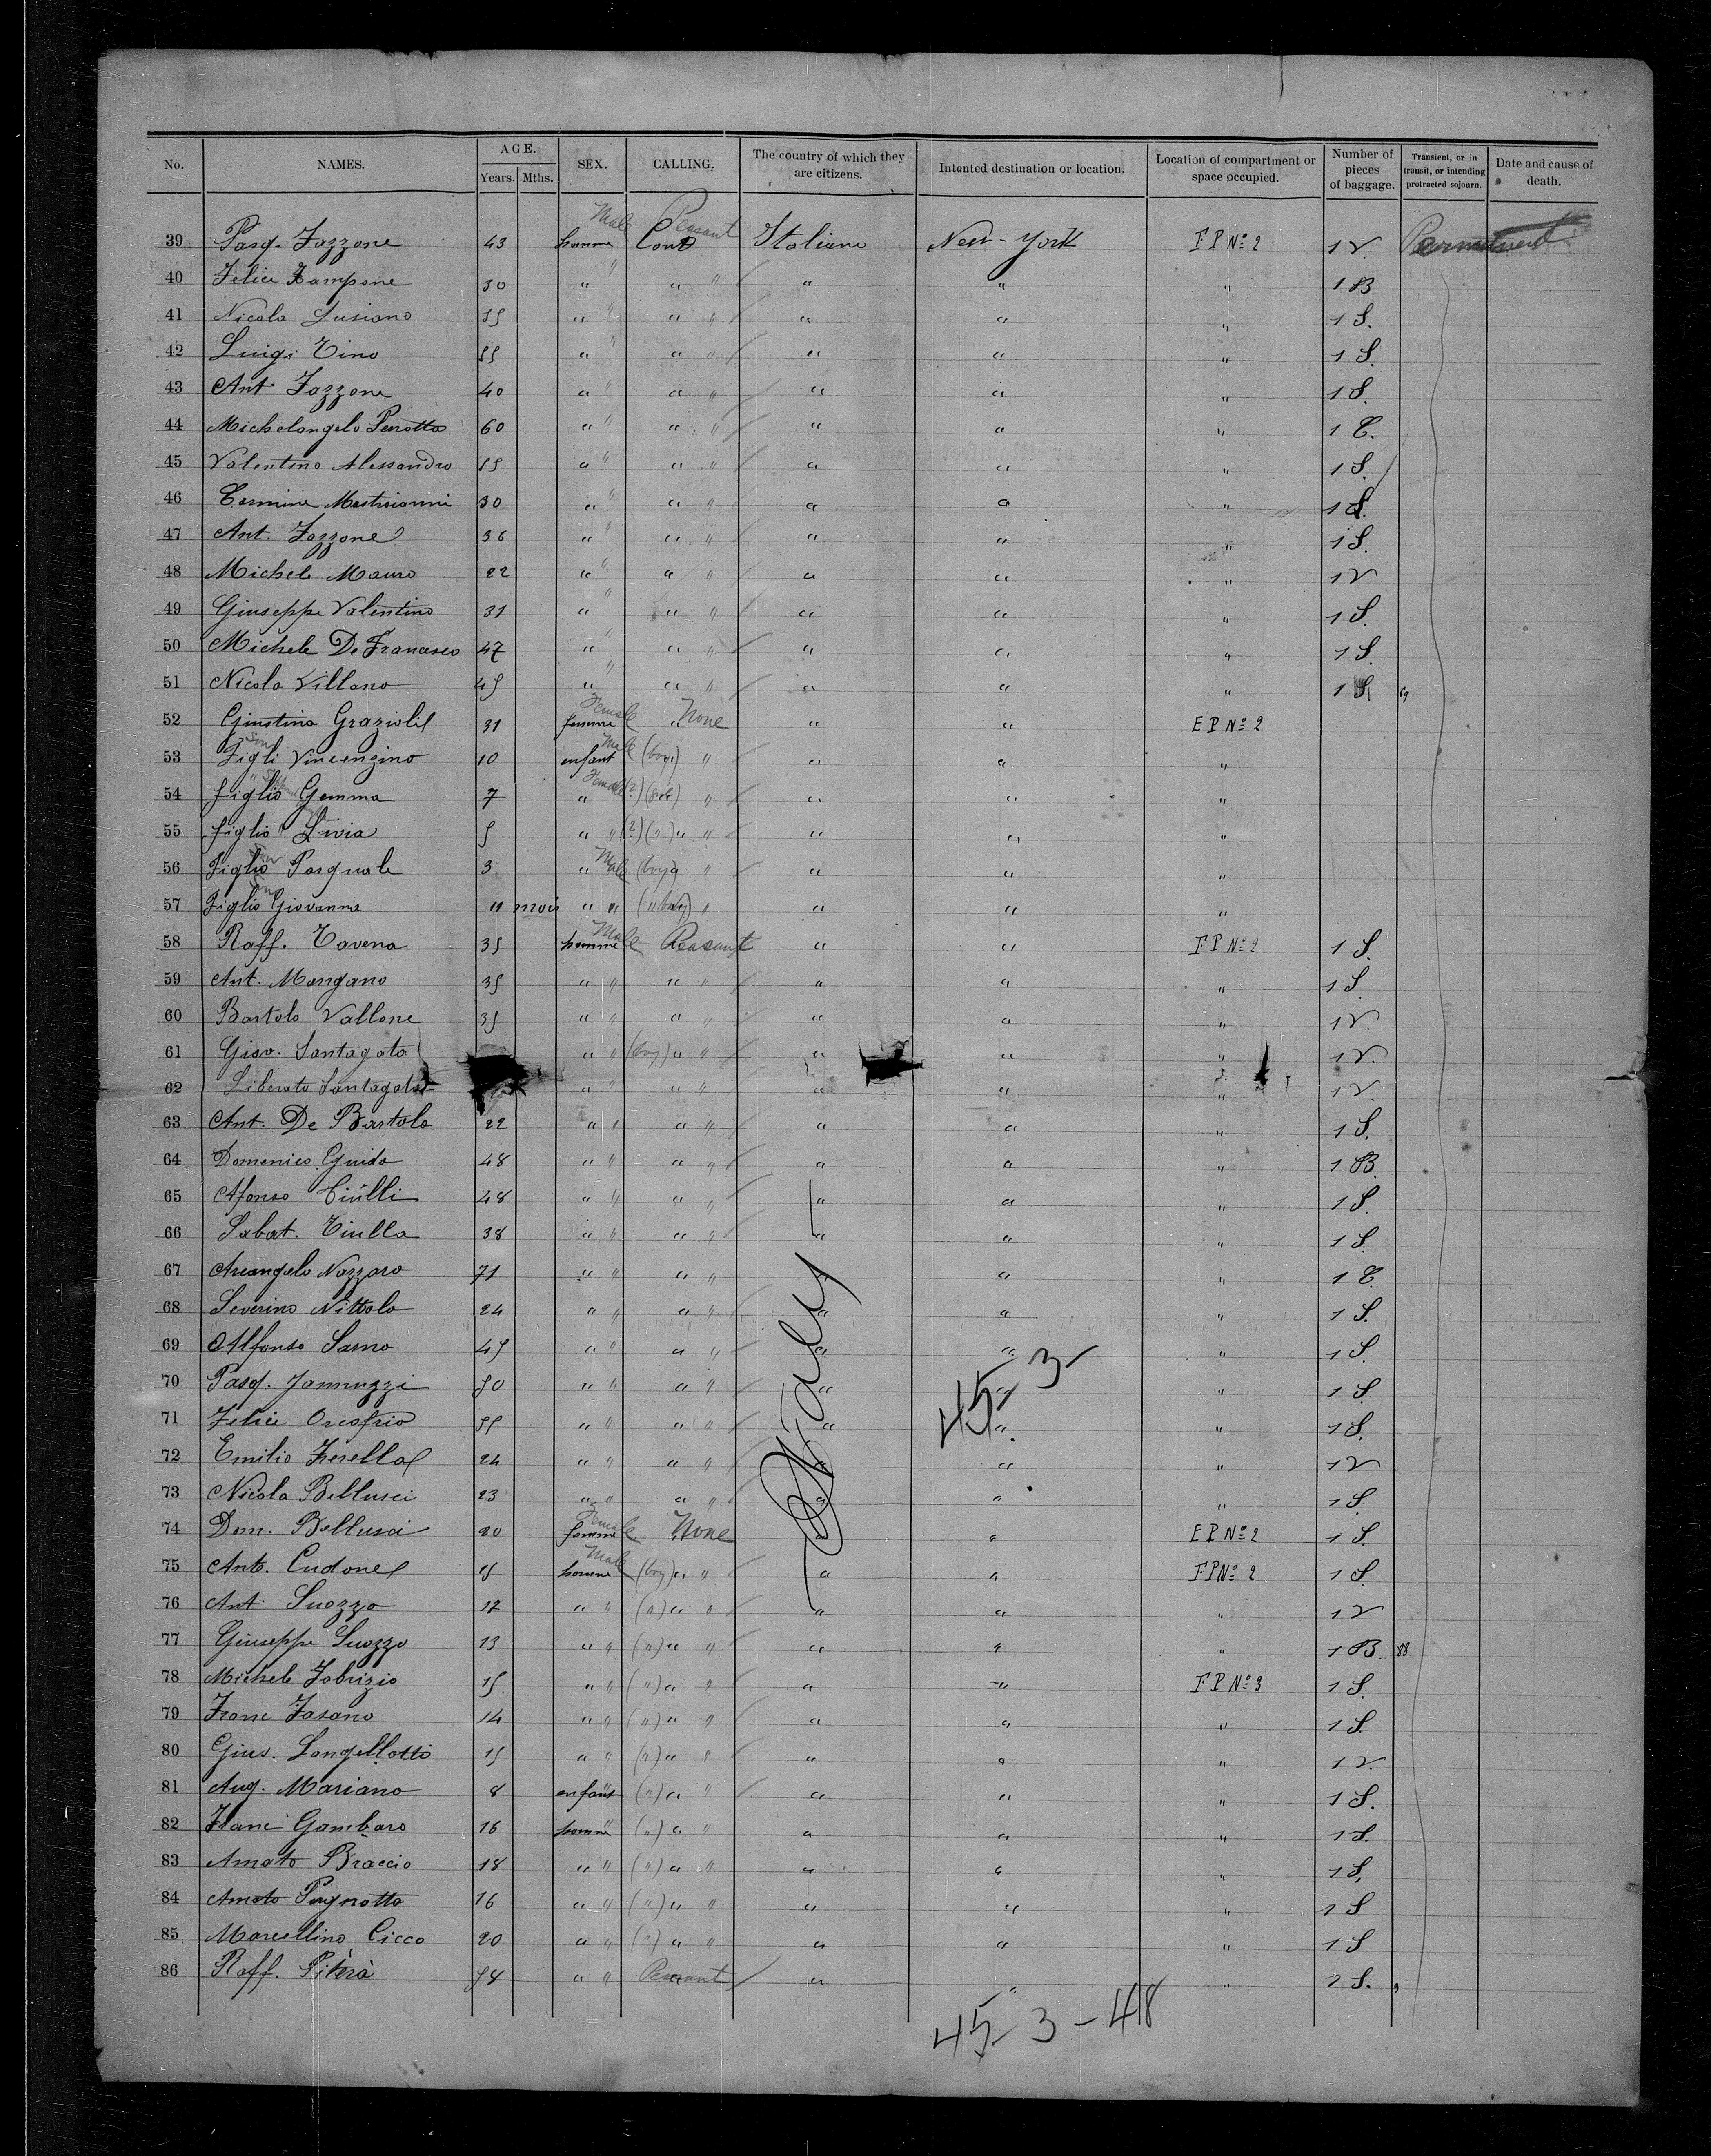 No. NAMES. AGE. Years. Mths. SEX. CALLING. The country of which they are citizens. Intented destination or location. Location of compartment or space occupied. Number of pieces of baggage. Transient, or in transit, or intending protracted sojourn. Date and cause of death.
39 Pasq. Fazzone 43 homme Male Cont Peasant Italiano New-York F P Nº 2 1 V.
40 Felice Zampone 30 " " " " " " " " 1 B
41 Nicola Lusiano 55 " " " " " " " 1 S.
42 Luigi Tino 55 " " " " " " " 1 S.
43 Ant. Fazzone 40 " " " " " " " 1 S.
44 Michelangelo Perrotta 60 " " " " " " " 1 C.
45 Valentino Alessandro 55 " " " " " " " 1 S.
46 Carmine Mastroianni 30 " " " " " " " 1 S.
47 Ant. Fazzone 36 " " " " " " " 1 S.
48 Michele Mauro 22 " " " " " " " 1 V
49 Giuseppe Valentino 31 " " " " " " " 1 S.
50 Michele De Francesco 47 " " " " " " " 1 S.
51 Nicola Villano 45 " " " " " " " 1 S.
52 Giustina Grazioli 31 femme Female " None " " E P Nº 2
53 Figli Vincenzino 10 enfant Male (boy) " " " "
54 figlio Gemma 7 " Female (?) " " " "
55 figlio Livia 5 " " (?) (") " " " " "
56 Figlio Pasquale 3 " Male (boy) " " " "
57 Figlio Giovanna 11 mois " " " " " "
58 Raff. Tavena 35 homme Male Peasant " " F P Nº 2 1 S.
59 Ant. Mangano 35 " " " " " " " 1 S.
60 Bartolo Vallone 35 " " " " " " " 1 V.
61 Giov. Santagata " " (boy) " " " " " 1 V.
62 Liberato Santagata " " " " " " " 1 V.
63 Ant. De Bartolo 22 " " " " " " " 1 S.
64 Domenico Guido 48 " " " " " " " 1 B.
65 Afonso Ciulli 48 " " " " " " " 1 S.
66 Sabat. Ciulla 38 " " " " " " " 1 S.
67 Arcangelo Nazzaro 71 " " " " " " " 1 C.
68 Severino Nittolo 24 " " " " " " " 1 S.
69 Alfonso Sarno 45 " " " " " " " 1 S.
70 Pasq. Jannuzzi 50 " " " " " " " 1 S.
71 Felice Onofrio 55 " " " " " " " 1 S.
72 Emilio Fresella 24 " " " " " " " 1 V
73 Nicola Bellusci 23 " " " " " " " 1 S.
74 Dom. Bellusci 20 femme Female " None " " E P Nº 2 1 S.
75 Ant. Cudone 15 homme Male (boy) " " " " F P Nº 2 1 S.
76 Ant. Suozzo 17 " " (") " " " " " 1 V
77 Giuseppe Suozzo 13 " " (") " " " " " 1 B.
78 Michele Fabrizio 15 " " (") " " " " F P Nº 3 1 S.
79 Franc Fasano 14 " " (") " " " " " 1 S.
80 Gius. Langellotti 15 " " (") " " " " " 1 V.
81 Aug. Mariano 8 enfant " (") " " " " " 1 S.
82 Franc Gambaro 16 homme " (") " " " " " 1 S.
83 Amato Braccio 18 " " (") " " " " " 1 S.
84 Amato Pugnatta 16 " " (") " " " " " 1 S
85 Marcellino Cicco 20 " " (") " " " " " 1 S
86 Raff. Piterà 58 " " Peasant " " " 1 S.
Italy
45 3
45 3 - 48